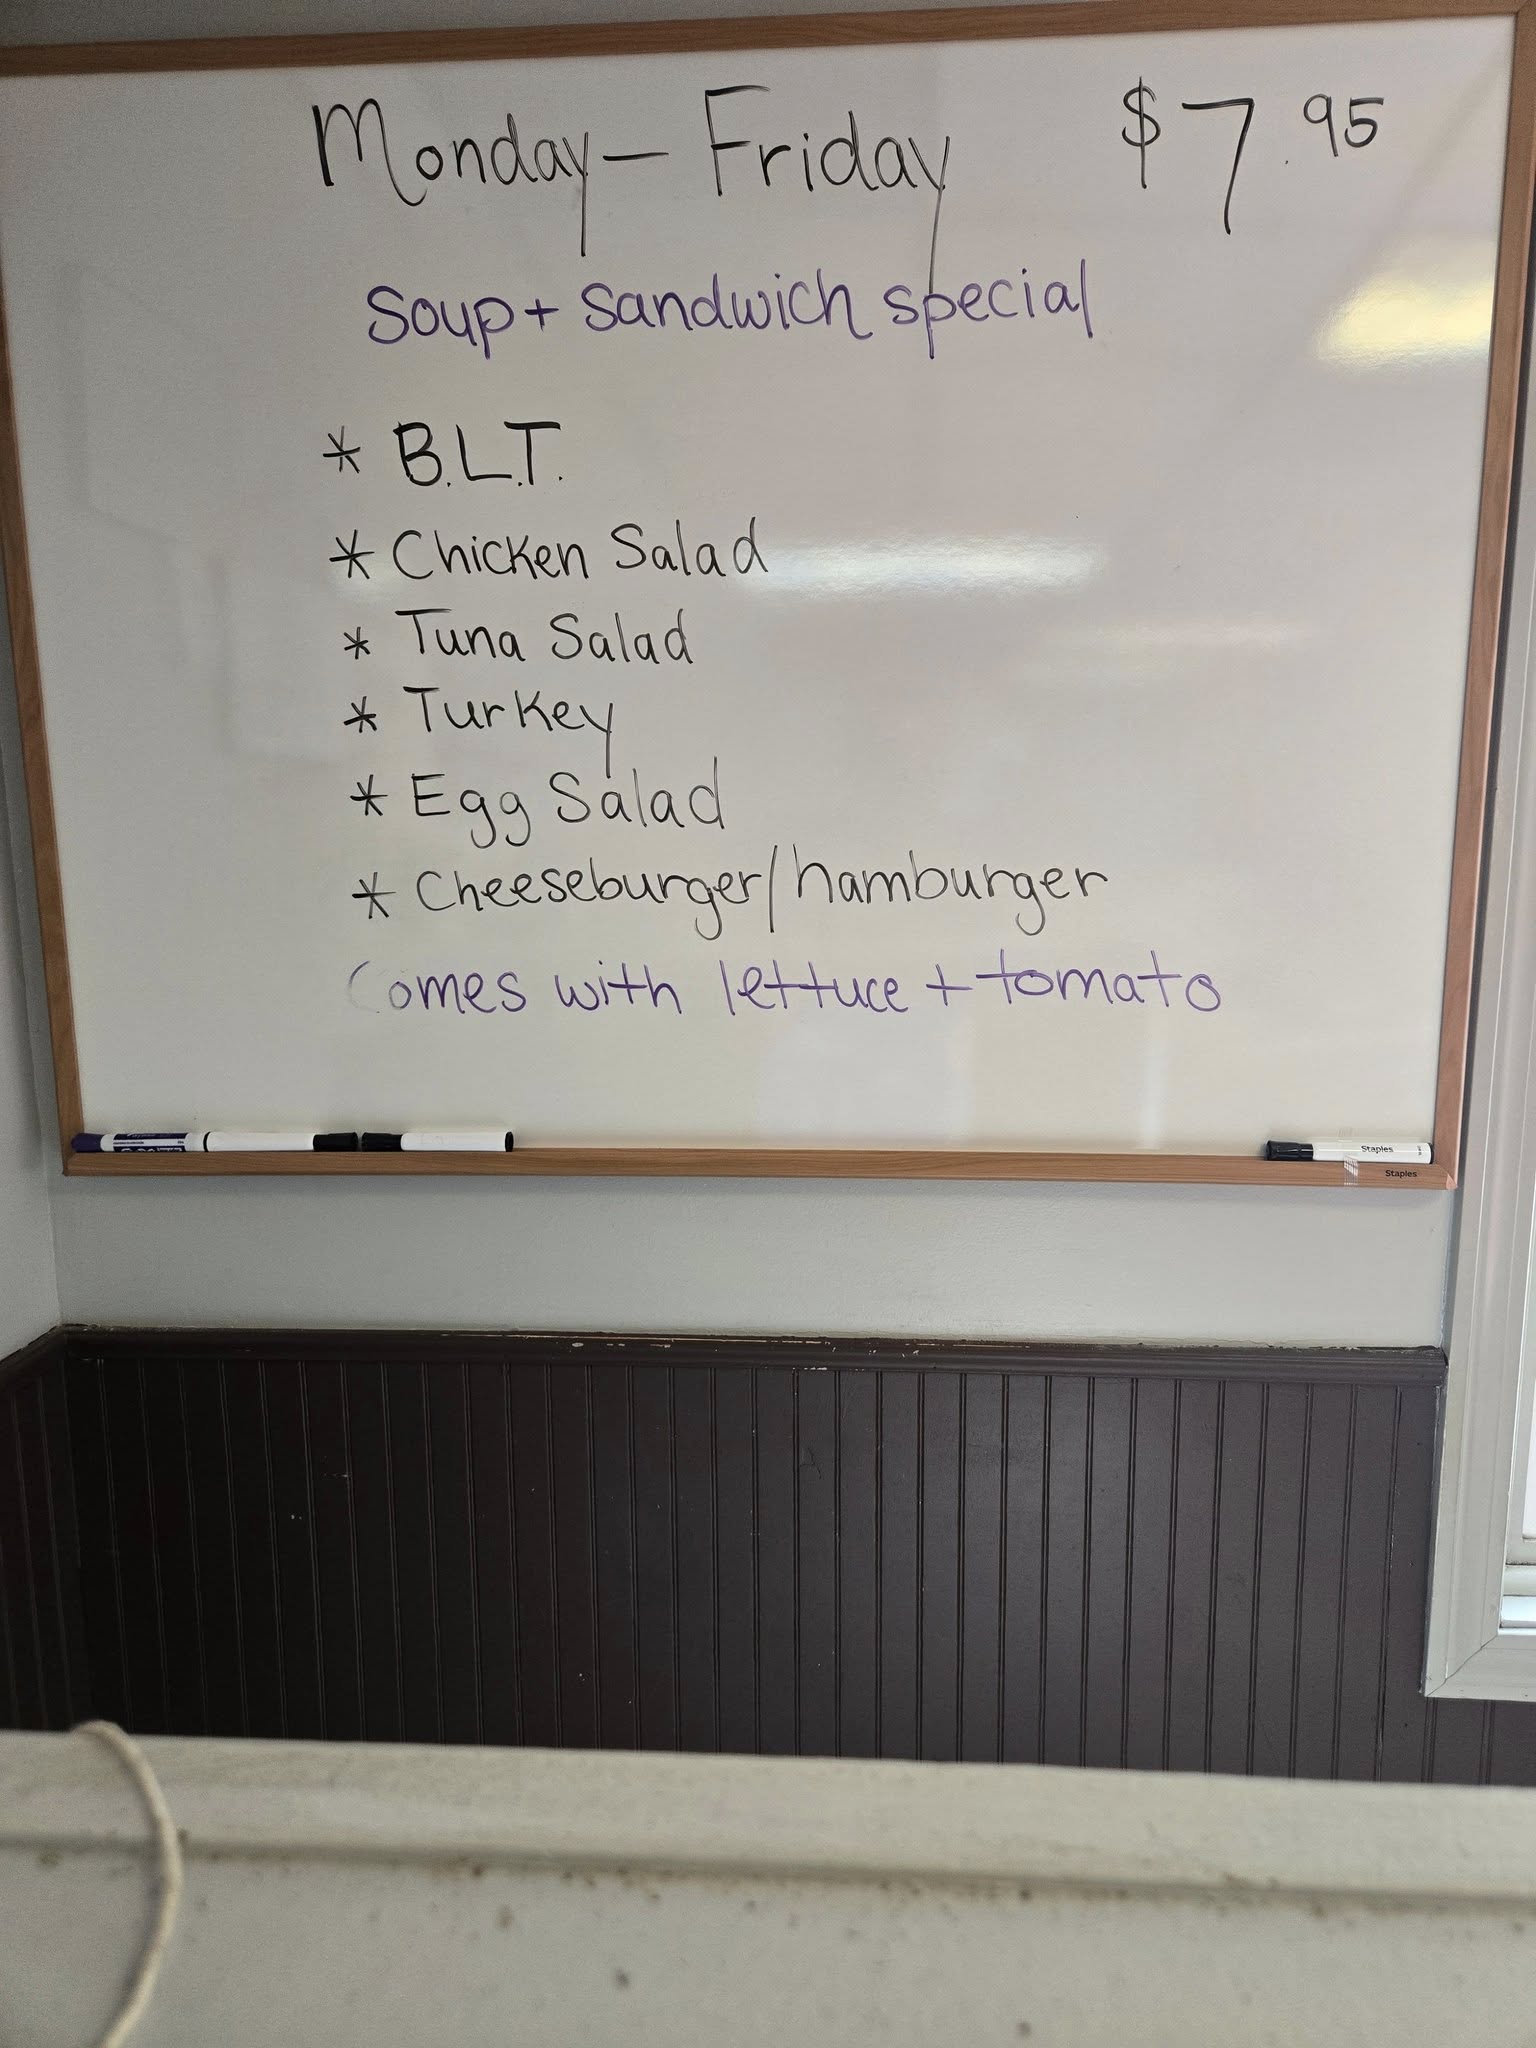 Monday - Friday $7.95
Soup + Sandwich special
* B.L.T.
* Chicken Salad
* Tuna Salad
* Turkey
* Egg Salad
* Cheeseburger/hamburger
Comes with lettuce + tomato
Staples
Staples